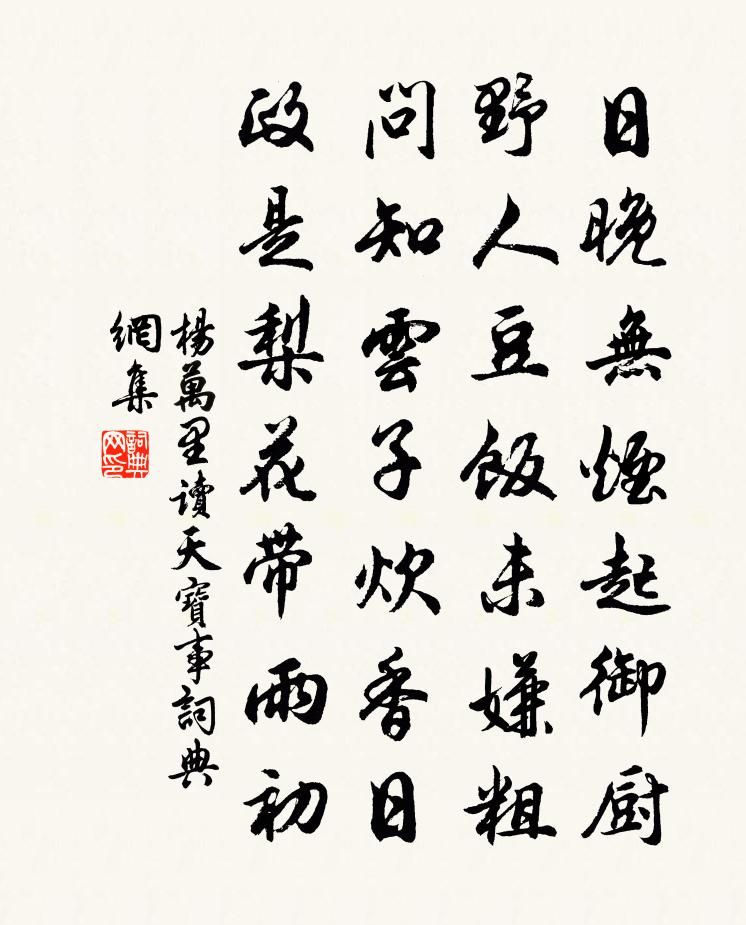 日晚無煙起御厨
野人豆飯未嫌粗
問知雲子炊香日
政是梨花帶雨初
楊萬里讀天寶事詞典
網集
詞典
网印